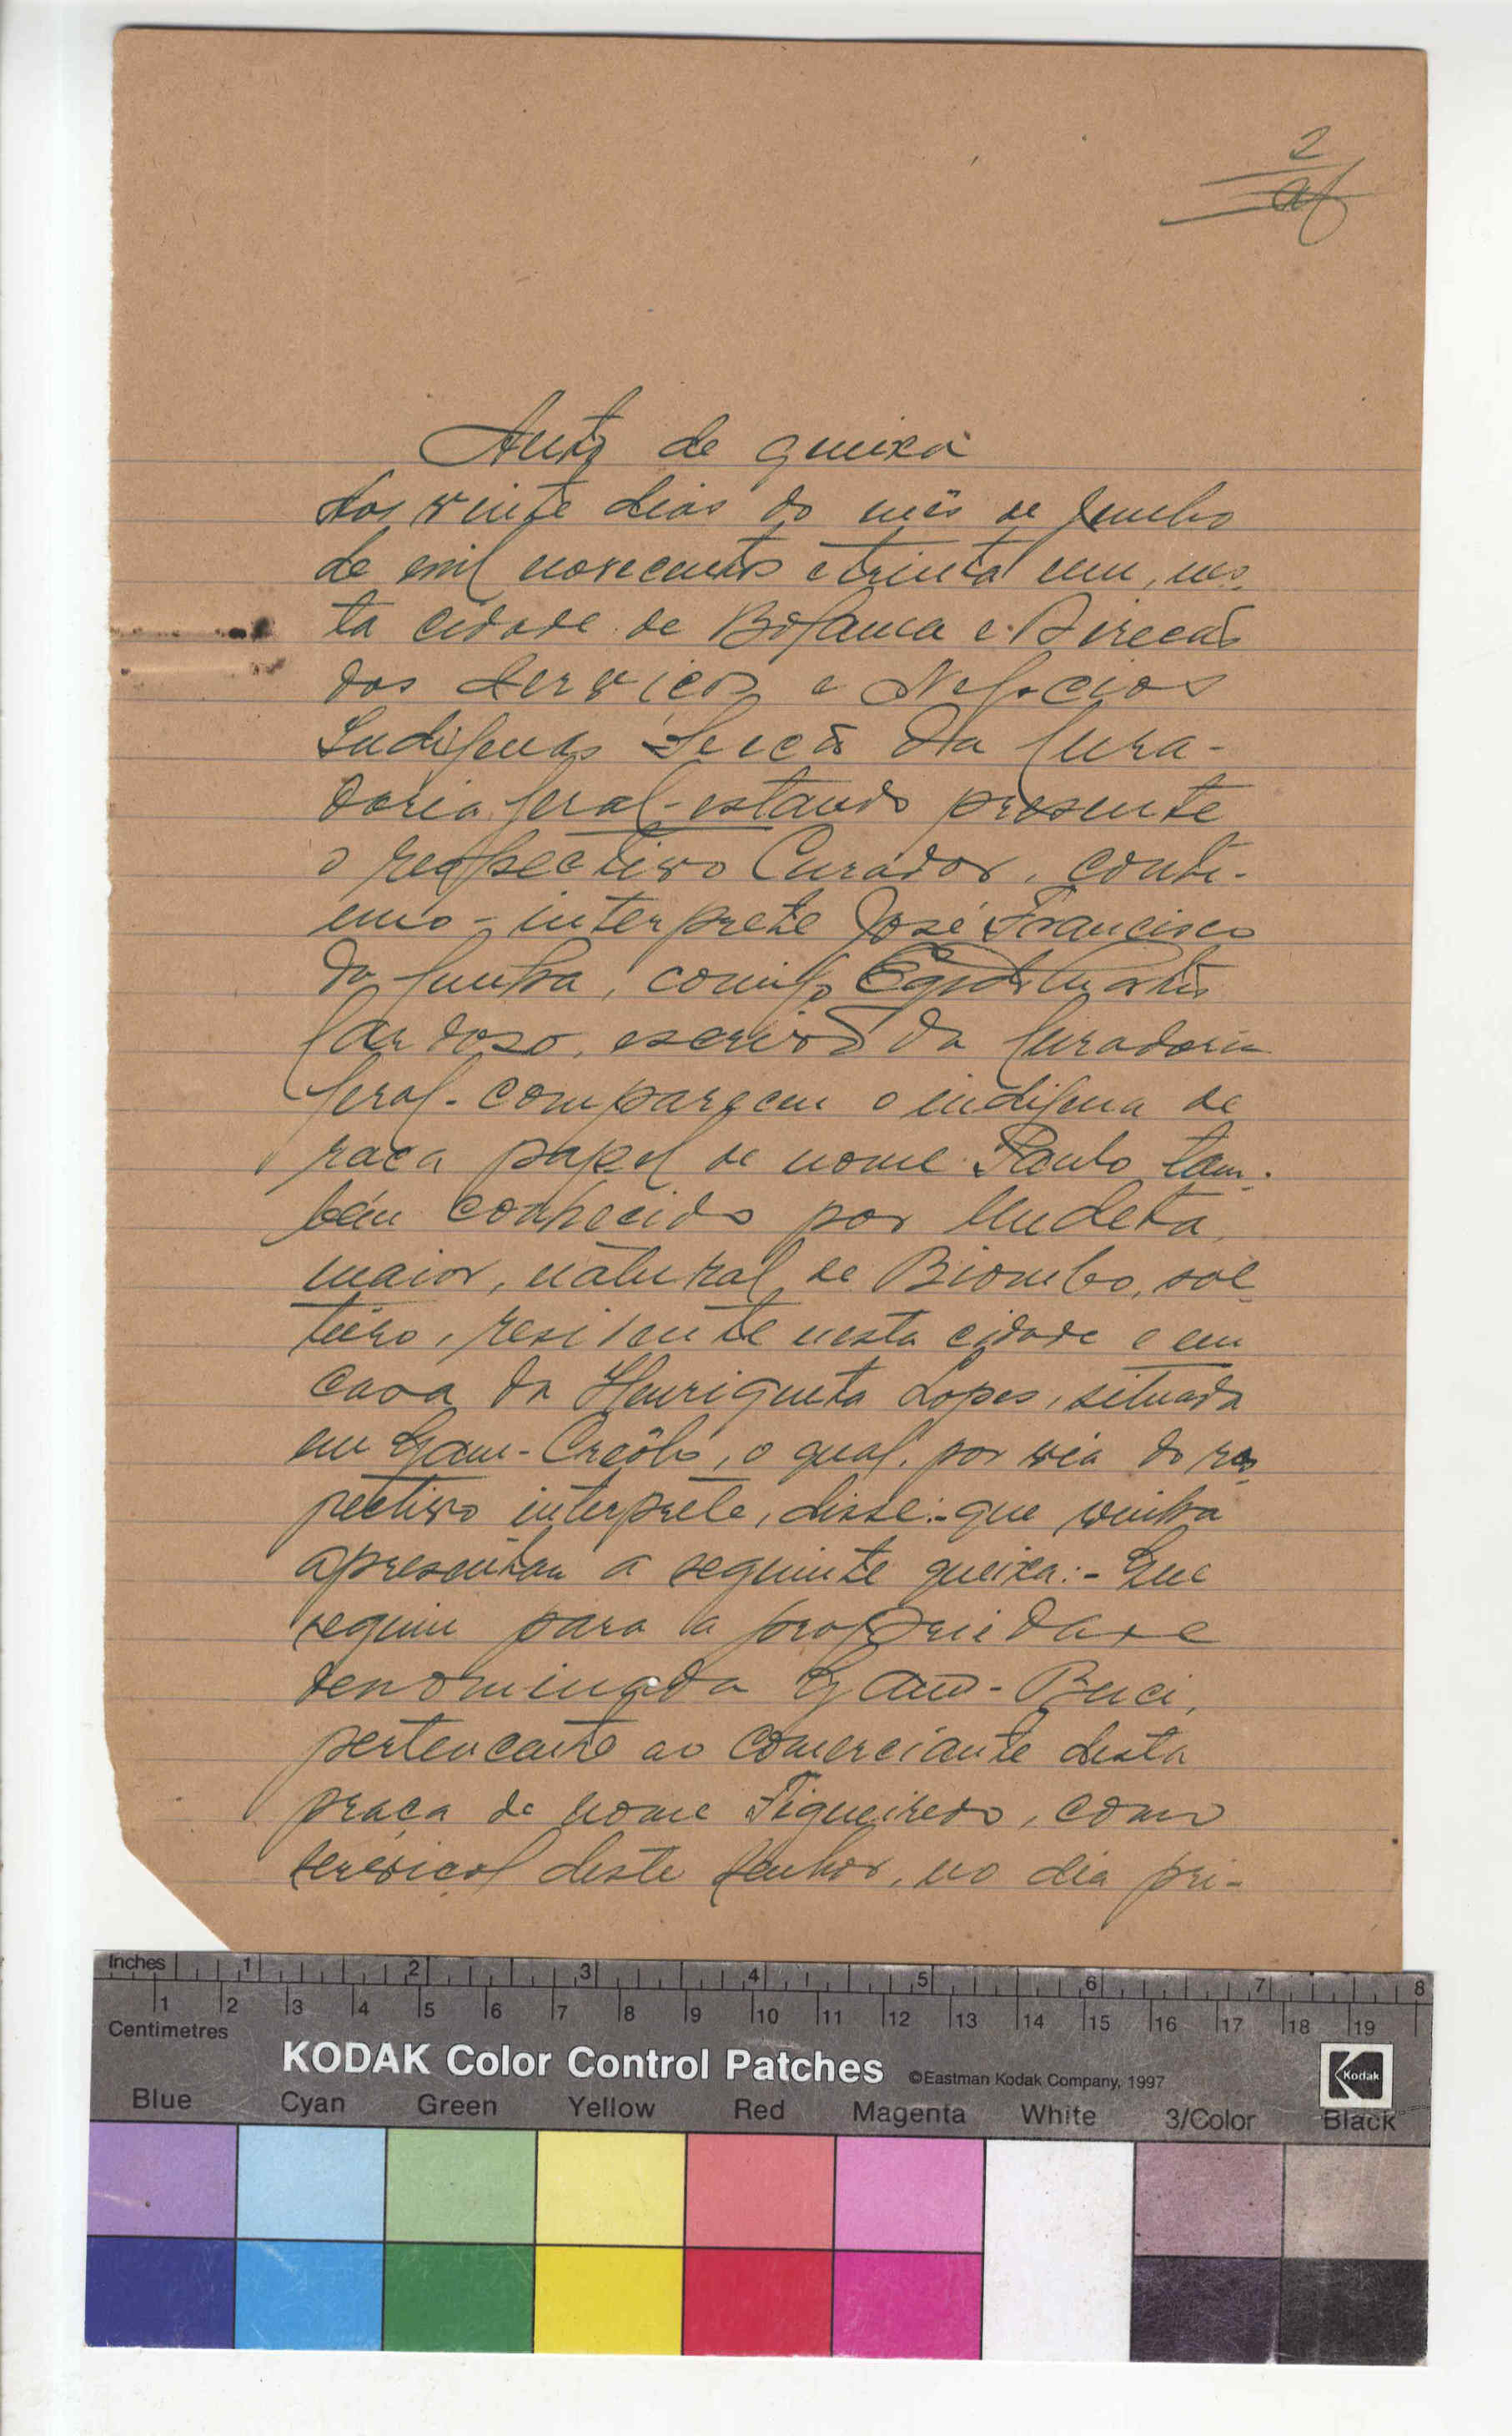 2
Auto de queixa
Aos vinte dias do mês de Junho
de mil novecentos e trinta e um, nes-
ta cidade de Bolama e Direcão
dos Serviços e Negocios
Indigenas Secção da Cura-
doria Geral - estando presente
o respectivo Curador, conti-
nuo - interprete José Francisco
da Cunha, comigo Martins
Cardoso, escrivão da Curadoria
Geral - compareceu o indigena de
raça papel de nome Paulo tam-
bém conhecido por
maior, natural de Biombo, sol-
teiro, residente nesta cidade e em
casa da Henriqueta Lopes, situada
em Gam-Creôlo, o qual, por via do res-
pectivo interprete, disse:- que vinha
apresentar a seguinte queixa:- Que
seguiu para a propriedade
denominada Gam-
pertencente ao comerciante desta
praça de nome Figueiredo, como
serviçal deste Senhor, no dia pri-
Inches 1 2 3 4 5 6 7 8
1 2 3 4 5 6 7 8 9 10 11 12 13 14 15 16 17 18 19
Centimetres
KODAK Color Control Patches ©Eastman Kodak Company, 1997 Kodak
Blue Cyan Green Yellow Red Magenta White 3/Color Black